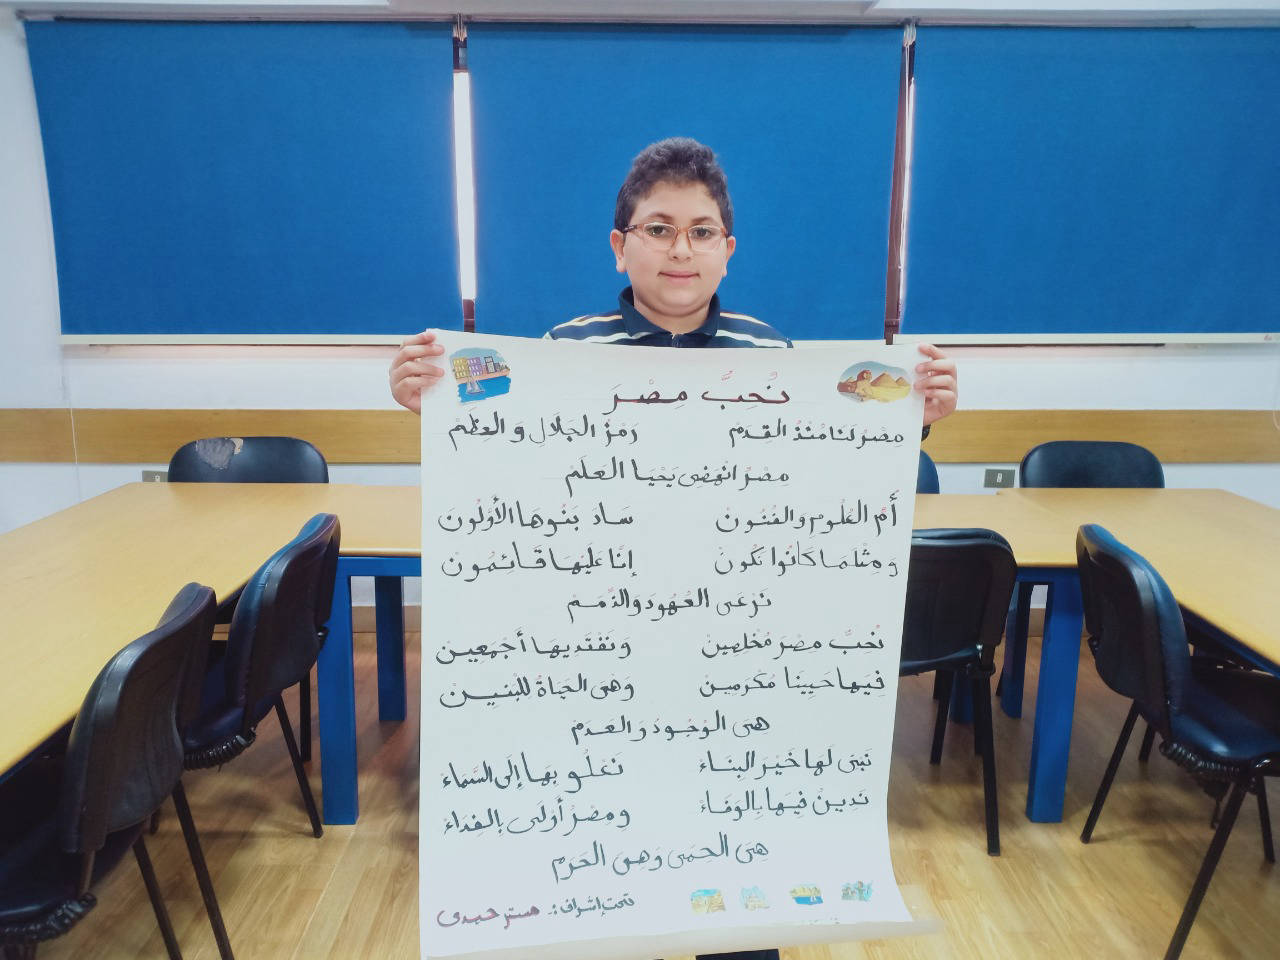 نُحِبُّ مِصْرَ
مِصْرُ لَنَا مُنْذُ القِدَمْ رَمْزُ الجَلَالِ وَ العِظَمْ
مِصْرُ انْهَضِى يَحْيَا العلَمْ
أُمُّ العُلُومِ وَالفُنُونْ سَادَ بَنُوهَا الأَوَّلُونَ
وَمِثْلَمَا كَانُوا نَكُونْ إِنَّا عَلَيْهَا قَائِمُونْ
نَرْعَى العُهُودَ وَالذِّمَمْ
نُحِبُّ مِصْرَ مُخْلِصِينْ وَنَفْتَدِيهَا أَجْمَعِينْ
فِيهَا حَيِينَا مُكْرَمِينْ وَهَى الحَيَاةُ لِلْبَنِينْ
هىَ الوُجُودُ وَ العَدَمْ
نَبْنِى لَهَا خَيْرَ البِنَاءْ نَعْلُو بِهَا إِلَى السَّمَاءْ
نَدِينُ فِيهَا بِالوَفَاءْ ومِصْرُ أَوْلَى بِالفِدَاءْ
هِىَ الحِمَى وَهِىَ الحَرَم
تحت إشراف :. مستر حمدى